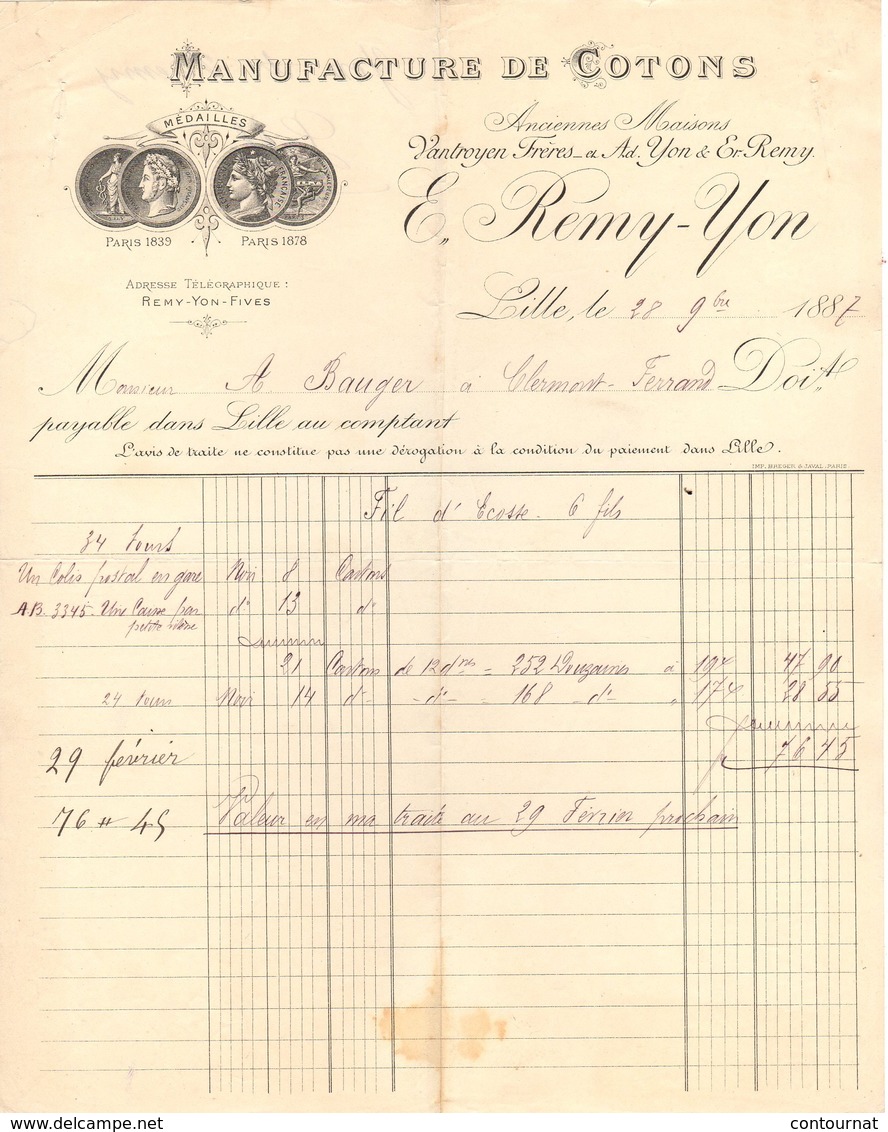 MANUFACTURE DE COTONS
MÉDAILLES
PARIS 1839 PARIS 1878
ADRESSE TÉLÉGRAPHIQUE :
REMY-YON-FIVES
Anciennes Maisons
Vantroyen Frères et Ad. Yon & Er. Remy.
E. Remy-Yon
Lille, le 28 9bre 1887
Monsieur A. Bauger à Clermont-Ferrand Doit
payable dans Lille au comptant
L'avis de traite ne constitue pas une dérogation à la condition du paiement dans Lille.
IMP. BREGER & JAVAL. PARIS.
Fil d'Ecosse 6 fils
34 tours
Un Colis postal en gare Noir 8 Cartons
AB. 3345. Une Caisse par d° 13 d°
petite vitesse
21 Cartons de 12 dnes = 252 Douzaines à 19 47 90
24 tours Noir 14 d° - d° - 168 - d° " 17 28 55
76 45
29 février
76 # 45 Valeur en ma traite au 29 Février prochain
© contournat